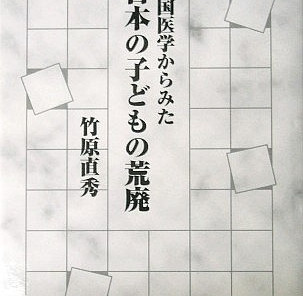 国医学からみた
日本の子どもの荒廃
竹原直秀